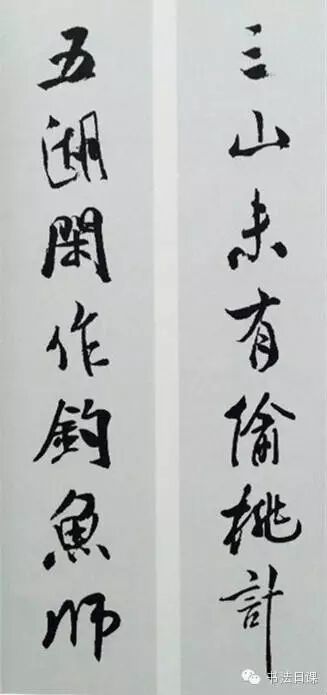 三山未有偷桃計
五湖閑作釣魚師
书法日课